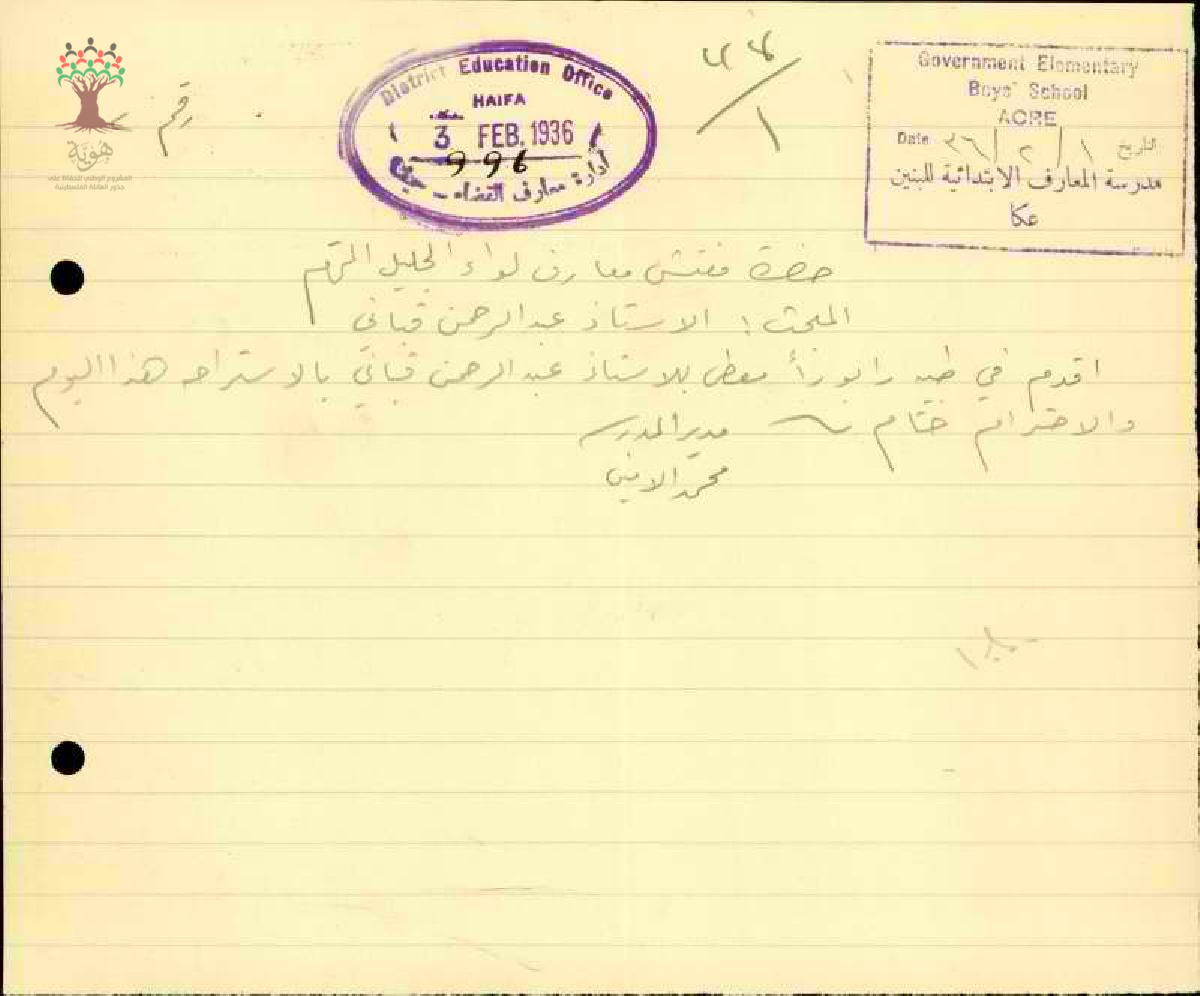 هوية
المشروع الوطني للحفاظ على
جذور العائلة الفلسطينية
رقم
District Education Office
HAIFA
3 FEB. 1936
996
ادارة معارف القضاء – حيفا
٤٤
١
Government Elementary
Boys' School
ACRE
Date ٣٦/٢/١ التاريخ
مدرسة المعارف الابتدائية للبنين
عكا
حضرة مفتش معارف لواء الجليل المحترم
المبحث : الاستاذ عبد الرحمن قباني
اقدم في طيه رابورتاً معطى للاستاذ عبد الرحمن قباني بالاستراحه هذا اليوم
والاحترام ختام
مدير المدرسه
محمد الامين